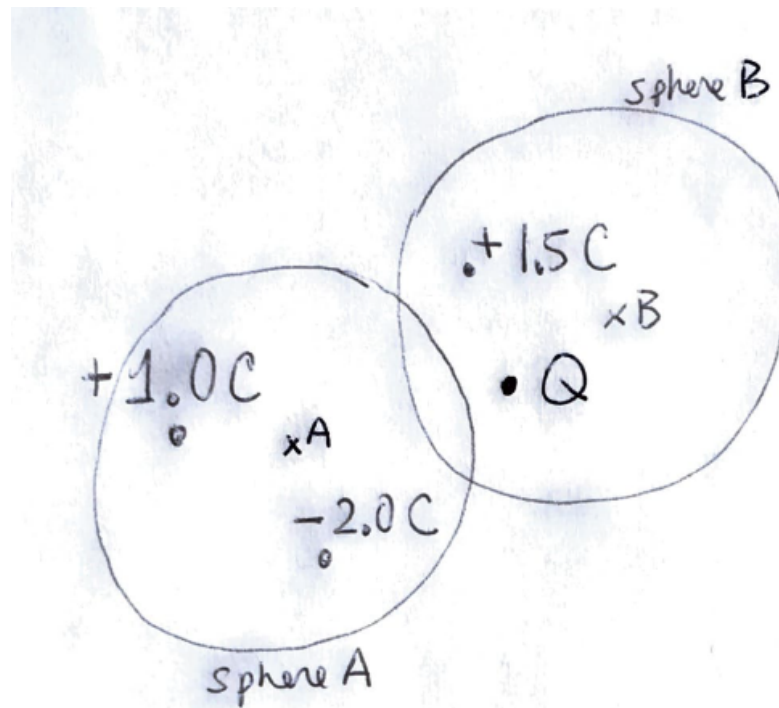 sphere B
+1.5 C
×B
Q
+1.0 C
×A
-2.0 C
sphere A